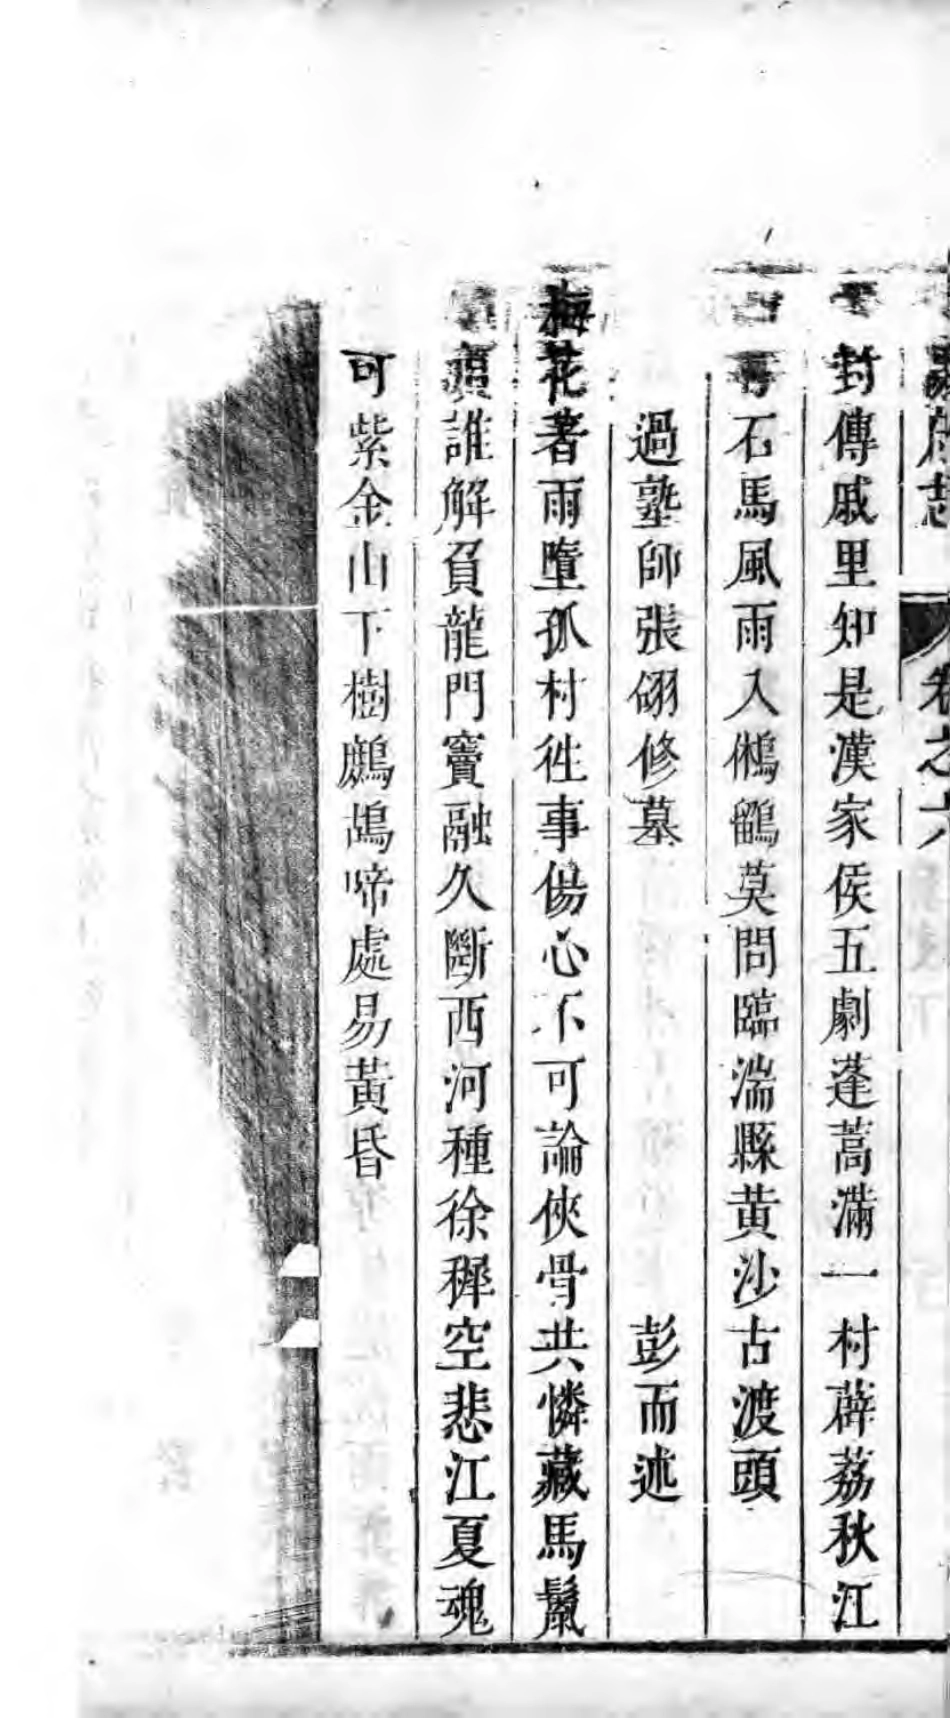 府志 卷之六
封傳戚里知是漢家侯五劇蓬蒿滿一村薜荔秋江
石馬風雨入鵂鶹莫問臨湍縣黃沙古渡頭
過塾師張翩修墓 彭而述
梅花著雨墮孤村徃事傷心不可論俠骨共憐藏馬鬣
誰解負龍門竇融久斷西河種徐穉空悲江夏魂
可紫金山下樹鷓鴣啼處易黃昏